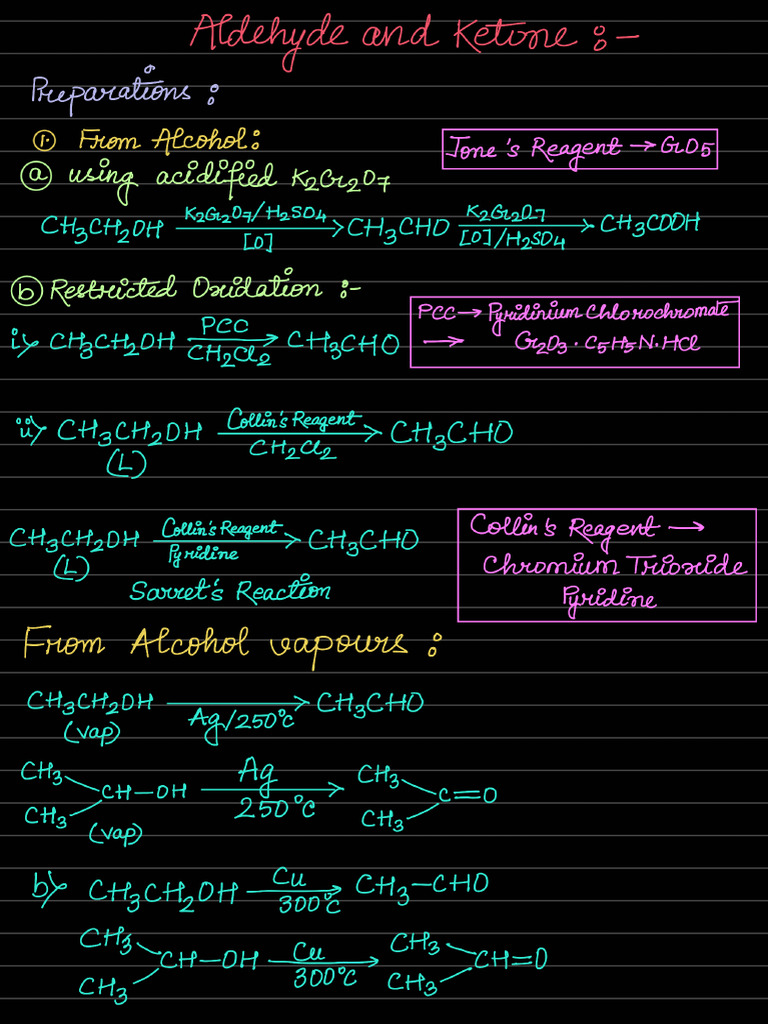 Aldehyde and Ketone :-
Preparations :
1. From Alcohol:
Jone's Reagent → CrO5
(a) using acidified K2Cr2O7
CH3CH2OH —K2Cr2O7/H2SO4 / [O]→ CH3CHO —K2Cr2O7 / [O]/H2SO4→ CH3COOH
(b) Restricted Oxidation :-
PCC → Pyridinium Chlorochromate
→ Cr2O3 · C5H5N·HCl
i> CH3CH2OH —PCC / CH2Cl2→ CH3CHO
ii> CH3CH2OH —Collin's Reagent / CH2Cl2→ CH3CHO
(L)
CH3CH2OH —Collin's Reagent / Pyridine→ CH3CHO
(L)
Sarret's Reaction
Collin's Reagent →
Chromium Trioxide
Pyridine
From Alcohol vapours :
CH3CH2OH —Ag/250°C→ CH3CHO
(vap)
CH3 CH3 CH—OH —Ag / 250°C→ CH3 CH3 C=O
(vap)
b> CH3CH2OH —Cu / 300°C→ CH3—CHO
CH3 CH3 CH—OH —Cu / 300°C→ CH3 CH3 CH=O